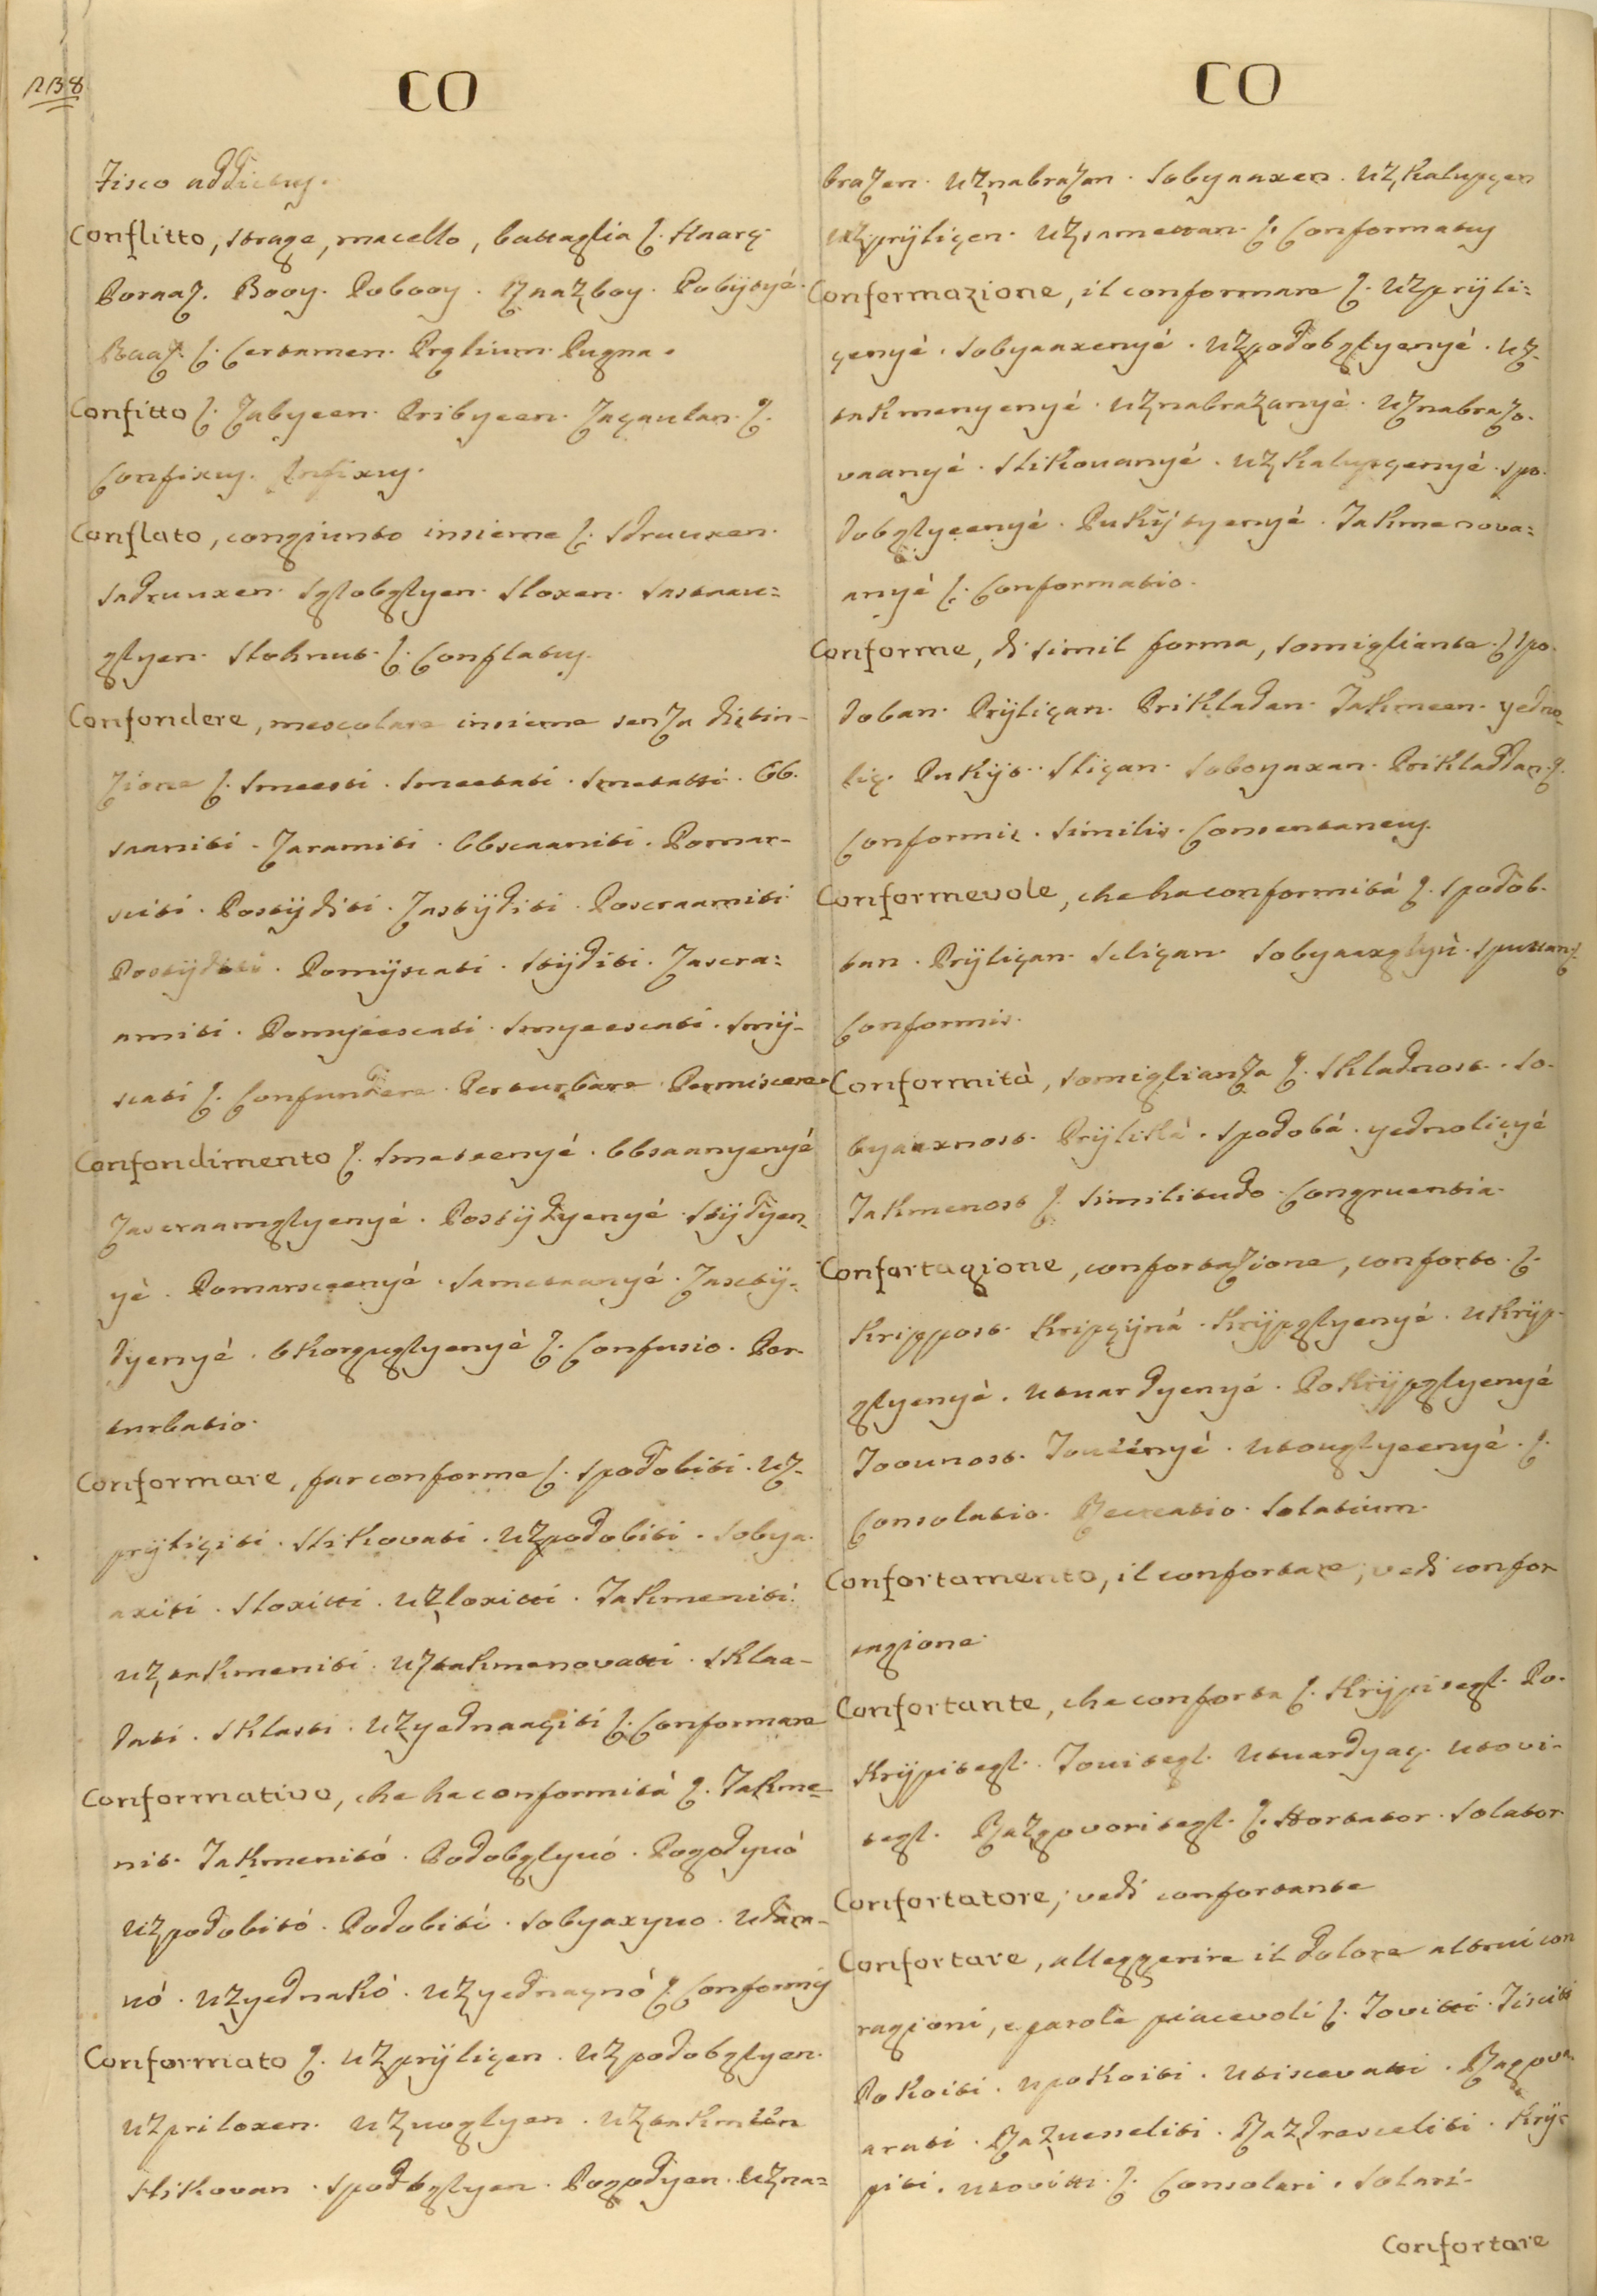 238
CO
Fisco addictus.
Conflitto, strage, macello, battaglia ʃ. Haarç.
Poraaz. Booy. Pobooy. Raazboy. Pobÿtyé.
Raat. ʃ. Certamen. Prælium. Pugna.
Confitto ʃ. Zabyeen. Pribyeen. Zaçaulan. ʃ.
Confixus. Infixus.
Conflato, congiunto insieme ʃ. Sdruuxen.
Sadruuxen. Sglobglyen. Sloxen. Sastaau=
glyen. Stoknut. ʃ. Conflatus.
Confondere, mescolare insieme senza distin-
zione ʃ. Smeesti. Smeetati. Smetatti. Ob.
saaniti. Zaramiti. Obscaaniti. Pomar-
sciti. Postÿditi. Zastÿditi. Poscraamiti.
Postÿditi. Pomÿscati. Stÿditi. Zascra=
amiti. Pomyéescati. Smyeescati. Smÿ-
scati ʃ. Confundere. Perturbare. Permiscere.
Confondimento ʃ. Smeteenyé. Obsaanyenyé
Zascraamglyenyé. Postÿdyenyé. Stÿdyen-
yé. Pomarsceenyé. Sametaanyé. Zastÿ-
dyenyé. Okorguglyenyé ʃ. Confusio. Per-
turbatio.
Conformare, far conforme ʃ. Spodobiti. Uz-
prÿliçiti. Slikovati. Uzpodobiti. Sobya-
axiti. Sloxitti. Uzloxitti. Takmeniti.
Uztakmeniti. Uztakmenovatti. Sklaa-
dati. Sklasti. Uzyednaaçiti ʃ. Conformare
Conformativo, che ha conformità ʃ. Takme-
nit. Takmenitó. Podobglyuó. Pogodyuó
Uzpodobitó. Podobitó. Sobyaxyuo. Udara-
uó. Uzyednakó. Uzyednaçnó ʃ. Conformis
Conformato ʃ. Uzprÿliçen. Uzpodobglyen.
Uzpriloxen. Uzuoglyen. Uztakmeen
Slikovan. Spodobglyen. Pogodyen. Uzna=
CO
brazen. Uznabrazan. Sobyaaxen. Uzkalupçen
Uzprÿliçen. Uzsamettan. ʃ. Conformatus
Confermazione, il conformare ʃ. Uzprÿli=
çenyé. Sobyaaxenyé. Uzpodobglyenyé. Uz-
takmenyenyé. Uznabrazanyé. Uznabrazo-
vaanyé. Slikovanyé. Uzkalupçenyé. Spo-
dobglyeenyé. Pukÿtyenyé. Takmenova=
anyé ʃ. Conformatio.
Conforme, di simil forma, somigliante. ʃ. Spo-
doban. Prÿliçan. Prikladan. Takmeen. Yedno-
liç. Pukÿt. Sliçan. Soboyaxan. Prikladdan. ʃ.
Conformis. Similis. Consentaneus.
Conformevole, che ha conformità ʃ. Spodob-
tan. Prÿliçan. Scliçan. Sobyaaxglyù. Sputtan ʃ.
Conformis.
Conformità, somiglianza ʃ. Skladnost. So-
byaaxnost. Prÿlikà. Spodobà. Yednoliçyé
Takmenost ʃ. Similitudo. Congruentia.
Confortagione, confortazione, conforto. ʃ.
Krippost. Kripçÿnà. Krÿpglyenyé. Ukrÿp-
glyenyé. Utuardyenyé. Pokrÿpglyenyé
Toounost. Touéényé. Utouglyeenyé. ʃ.
Consolatio. Recreatio. Solatium.
Confortamento, il confortare; vedi confor
tagione.
Confortante, che conforta ʃ. Krÿpitegl. Po-
krÿpitegl. Touitegl. Utuardyaç. Utovi-
tegl. Razgovoritegl. ʃ. Hortator. Solator
Confortatore; vedi confortante
Confortare, alleggerire il dolore altrui con
ragioni, e parole piacevoli ʃ. Tovitti. Tiscitti
Pokoiti. Upokoiti. Utiscevatti. Razgova-
arati. Razuesseliti. Razdresceliti. Krÿ-
piti. Utovitti. ʃ. Consolari. Solari.
Confortare